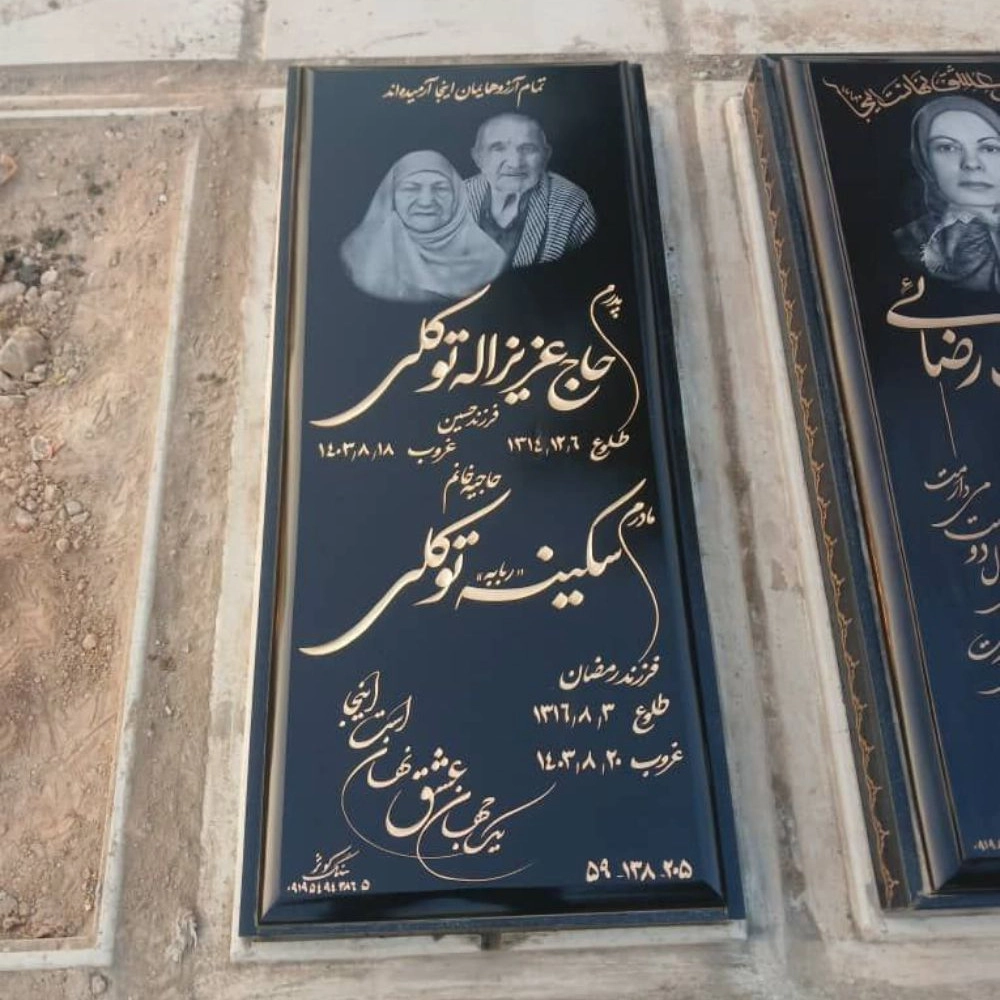 تمام آرزوهایمان اینجا آرمیده‌اند
پدرم
حاج عزیزاله توکلی
فرزند حسین
طلوع ۱۳۱٤٫۱۲٫٦ غروب ۱٤۰۳٫۸٫۱۸
حاجیه خانم
مادرم
سکینه «ربابه» توکلی
فرزند رمضان
طلوع ۱۳۱٦٫۸٫۳
غروب ۱٤۰۳٫۸٫۲۰
یک جهان عشق نهان است اینجا
۵۹-۱۳۸-۲۰۵
سنگ کوثر
۰۹۱۹۵٤۹٤۳۸٦۵
رضائی
می‌دارمت